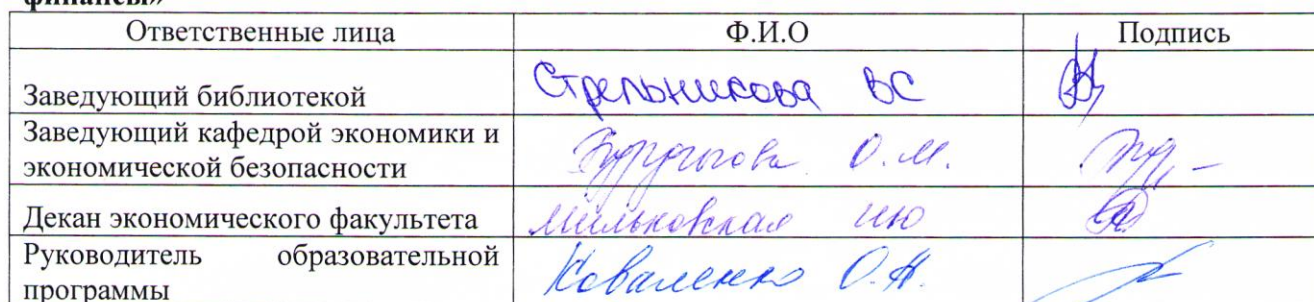 финансы»
Ответственные лица Ф.И.О Подпись
Заведующий библиотекой Стрельникова ВС
Заведующий кафедрой экономики и
экономической безопасности О.М.
Декан экономического факультета Мильковская ИЮ
Руководитель образовательной
программы Коваленко О.Н.